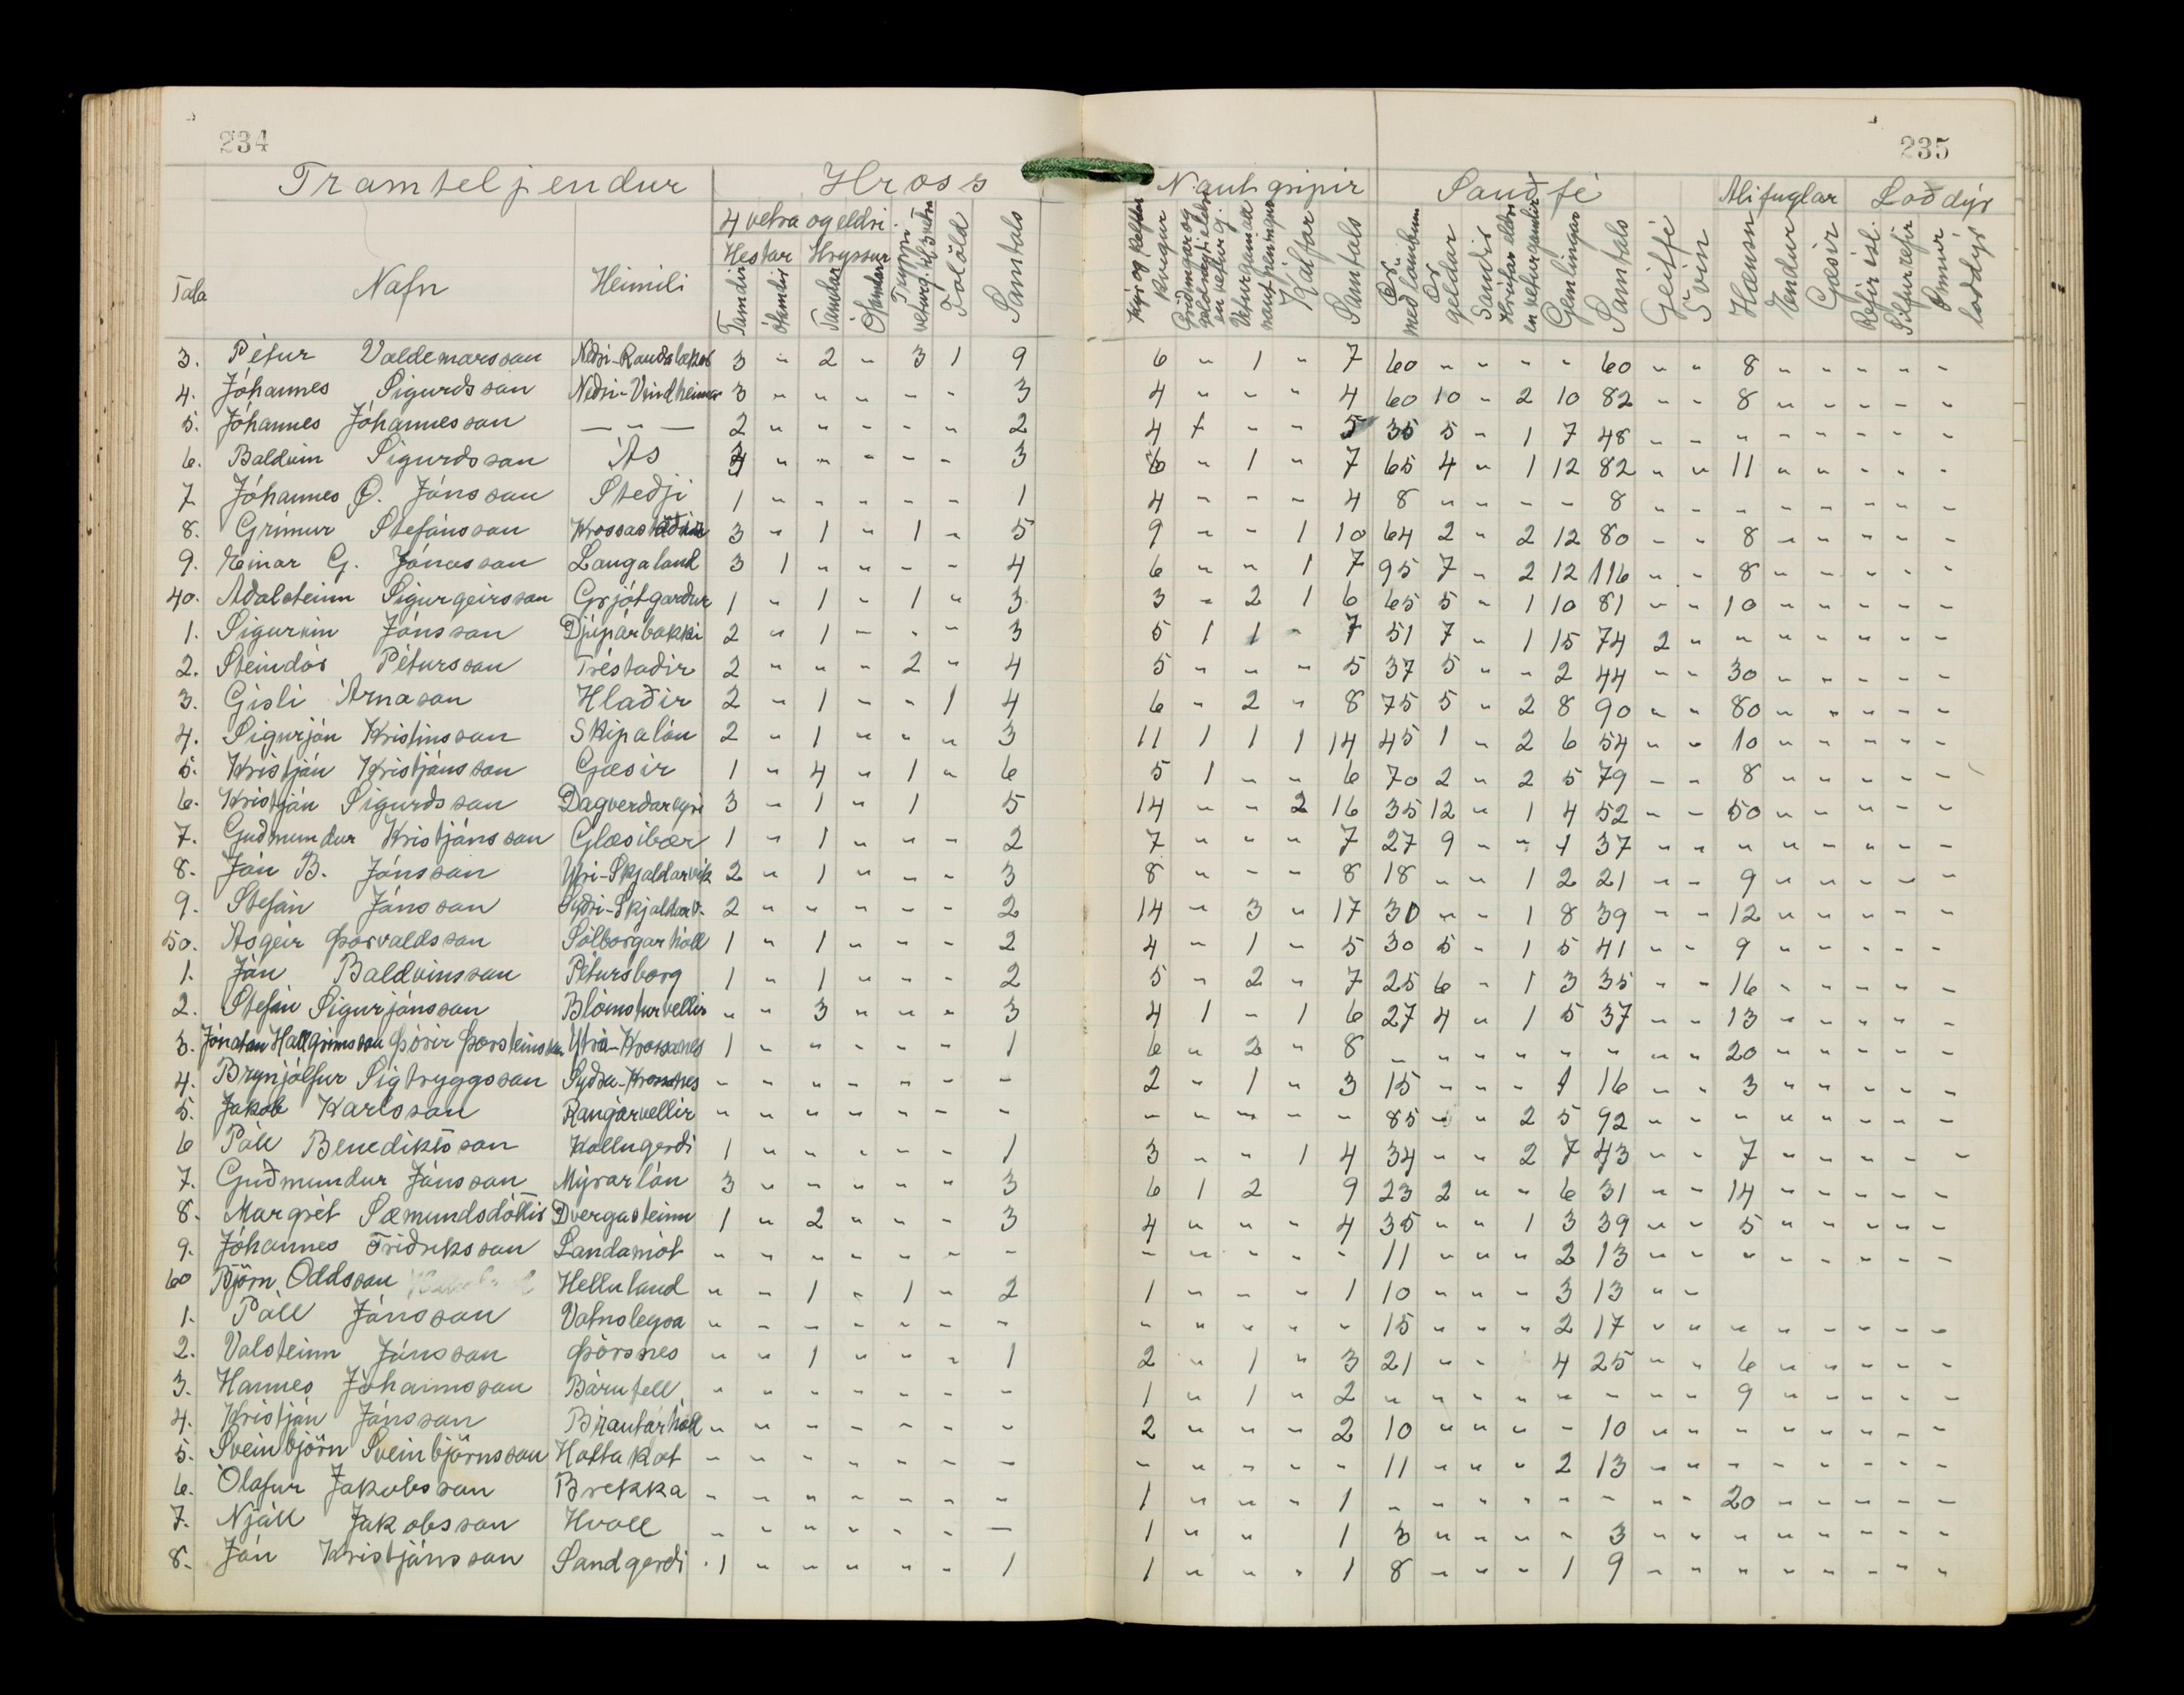 234
235
Framteljendur Hross Nautgripir Sauðfé Alifuglar Loðdýr
4 vetra og eldri.
Hestar Hryssur
Tala Nafn Heimili Tamdir ótamdir Tamdar Ótamdar Tryppi Folöld Samtals Kýr og kelfdar kvígur Veturgamall nautpeningur Kálfar Samtals Ær með lömbum Ær geldar Sauðir Hrútar eldri en veturgamlir Gemlingar Samtals Geitfé Svín Hænsn Endur Gæsir Refir ísl. Silfurrefir Önnur loðdýr
3. Pétur Valdemarsson Neðri-Rauðalækur 3 " 2 " 3 1 9 6 " 1 " 7 60 " " " " 60 " " 8 " " " " "
4. Jóhannes Sigurðsson Neðri-Vindheimar 3 " " " " " 3 4 " " " 4 60 10 " 2 10 82 " " 8 " " " " "
5. Jóhannes Jóhannesson — " — 2 " " " " " 2 4 1 " " 5 35 5 " 1 7 48 " " " " " " " "
6. Baldvin Sigurðsson Ás 3 " " " " " 3 6 " 1 " 7 65 4 " 1 12 82 " " 11 " " " " "
7 Jóhannes Ó. Jónsson Steðji 1 " " " " " 1 4 " " " 4 8 " " " " 8 " " " " " " " "
8. Grímur Stefánsson Krossastaðir 3 " 1 " 1 " 5 9 " " 1 10 64 2 " 2 12 80 " " 8 " " " " "
9. Einar G. Jónasson Laugaland 3 1 " " " " 4 6 " " 1 7 95 7 " 2 12 116 " " 8 " " " " "
40. Aðalsteinn Sigurgeirsson Grjótgarður 1 " 1 " 1 " 3 3 " 2 1 6 65 5 " 1 10 81 " " 10 " " " " "
1. Sigurvin Jónsson Djúpárbakki 2 " 1 " " " 3 5 1 1 " 7 51 7 " 1 15 74 2 " " " " " " "
2. Steindór Pétursson Tréstaðir 2 " " " 2 " 4 5 " " " 5 37 5 " " 2 44 " " 30 " " " " "
3. Gísli Árnason Hlaðir 2 " 1 " " 1 4 6 " 2 " 8 75 5 " 2 8 90 " " 80 " " " " "
4. Sigurjón Kristinsson Skipalón 2 " 1 " " " 3 11 1 1 1 14 45 1 " 2 6 54 " " 10 " " " " "
5. Kristján Kristjánsson Gæsir 1 " 4 " 1 " 6 5 1 " " 6 70 2 " 2 5 79 " " 8 " " " " "
6. Kristján Sigurðsson Dagverðareyri 3 " 1 " 1 5 14 " " 2 16 35 12 " 1 4 52 " " 50 " " " " "
7. Guðmundur Kristjánsson Glæsibær 1 " 1 " " " 2 7 " " " 7 27 9 " " 1 37 " " " " " " " "
8. Jón B. Jónsson Ytri-Skjaldarvík 2 " 1 " " " 3 8 " " " 8 18 " " 1 2 21 " " 9 " " " " "
9. Stefán Jónsson Syðri-Skjaldarv. 2 " " " " " 2 14 " 3 " 17 30 " " 1 8 39 " " 12 " " " " "
50. Ásgeir Þorvaldsson Sólborgarhóll 1 " 1 " " " 2 4 " 1 " 5 30 5 " 1 5 41 " " 9 " " " " "
1. Jón Baldvinsson Pétursborg 1 " 1 " " " 2 5 " 2 " 7 25 6 " 1 3 35 " " 16 " " " " "
2. Stefán Sigurjónsson Blómsturvellir " " 3 " " " 3 4 1 " 1 6 27 4 " 1 5 37 " " 13 " " " " "
3. Jónatan Hallgrímsson Þórir Þorsteinsson Ytra-Krossanes 1 " " " " " 1 6 " 2 " 8 " " " " " " " " 20 " " " " "
4. Brynjólfur Sigtryggsson Syðra-Krossanes " " " " " " " 2 " 1 " 3 15 " " " 1 16 " " 3 " " " " "
5. Jakob Karlsson Rangárvellir " " " " " " " " " " " " 85 " " 2 5 92 " " " " " " " "
6 Páll Benediktsson Kollugerði 1 " " " " " 1 3 " " 1 4 34 " " 2 7 43 " " 7 " " " " "
7. Guðmundur Jónsson Mýrarlón 3 " " " " " 3 6 1 2 9 23 2 " " 6 31 " " 14 " " " " "
8. Margrét Sæmundsdóttir Dvergasteinn 1 " 2 " " " 3 4 " " " 4 35 " " 1 3 39 " " 5 " " " " "
9. Jóhannes Friðriksson Sandamót " " " " " " " " " " " " 11 " " " 2 13 " " " " " " " "
60 Björn Oddsson Helluland " " 1 " 1 " 2 1 " " " 1 10 " " " 3 13 " "
1. Páll Jónsson Vatnsleysa " " " " " " " " " " " " 15 " " " 2 17 " " " " " " " "
2. Valsteinn Jónsson Þórsnes " " 1 " " " 1 2 " 1 " 3 21 " " 4 25 " " 6 " " " " "
3. Hannes Jóhannsson Bárufell " " " " " " " 1 " 1 " 2 " " " " " " " " 9 " " " " "
4. Kristján Jónsson Brautarhóll " " " " " " " 2 " " " 2 10 " " " " 10 " " " " " " " "
5. Sveinbjörn Sveinbjörnsson Hottakot " " " " " " " " " " " " 11 " " " 2 13 " " " " " " " "
6. Ólafur Jakobsson Brekka " " " " " " " 1 " " " 1 " " " " " " " " 20 " " " " "
7. Njáll Jakobsson Hvoll " " " " " " — 1 " " 1 3 " " " " 3 " " " " " " " "
8. Jón Kristjánsson Sandgerði 1 " " " " " 1 1 " " " 1 8 " " " 1 9 " " " " " " " "